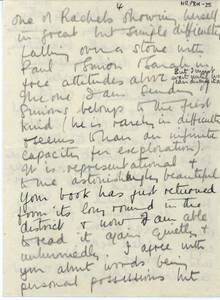 4
one of Rachels showing herself
in great but simple difficulty
falling over a stone with
Paul Simon Sarah in
free attitudes above
But I must
The one I am sending of
Simons belongs to the first
kind (he is rarely in difficulty
seems than an infinite
capacity for exploration).
It is representational &
to me astonishingly beautiful
Your book has just returned
from its long round in the
district & now I am able
to read it again quietly &
unhurriedly. I agree with
you about words being
personal possessions but